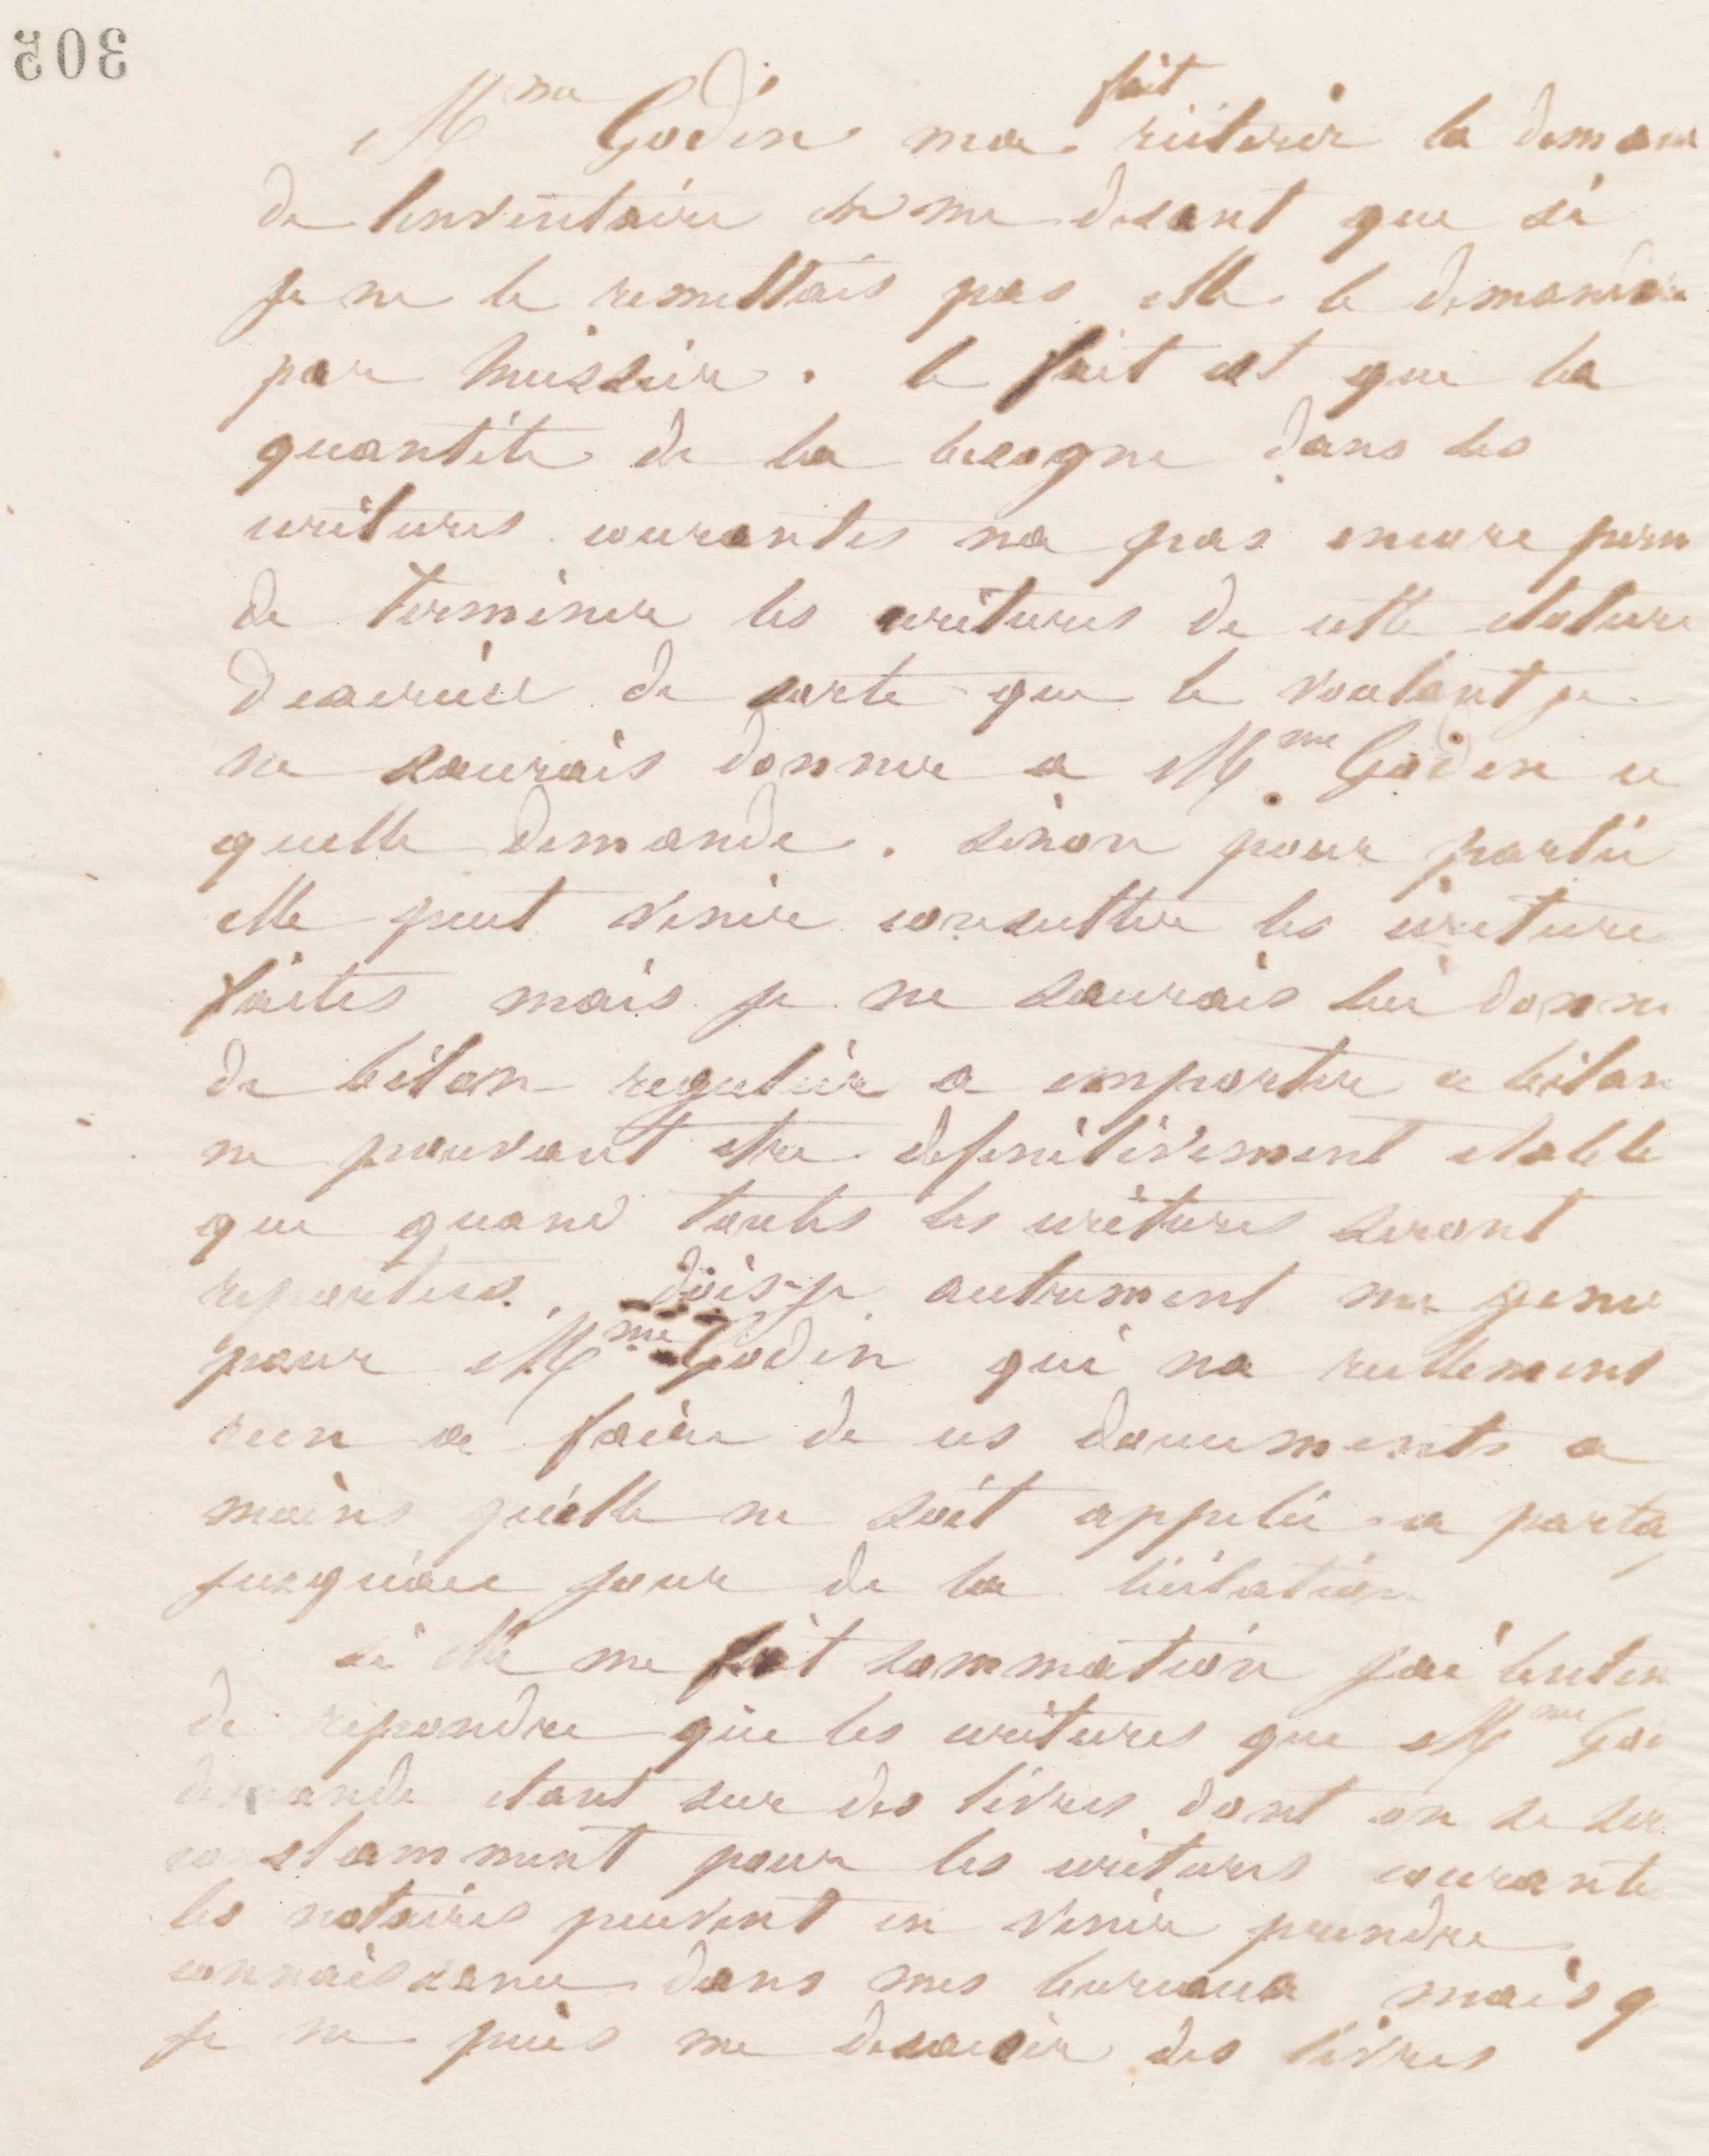 305
Mme Godin ma fait réiterer la deman
de linventaire en me disant que si
je ne le remettais pas elle le demander
par huissier. le fait est que la
quantité de la besogne dans les
ecritures courantes na pas encore perm
de terminer les ecritures de cette cloture
dexercice de sorte que le voulant je
ne saurais donner a Mme Godin ce
quelle demande. sinon pour partie
elle peut venir consulter les ecriture
faites mais je ne saurais lui donne
de bilan regulier a emporter ce bilan
ne pouvant etre definitivement etabli
que quand toutes les ecritures seront
reportees. dois-je autrement me gener
pour Mme Godin qui na reellement
rien a faire de ces documents a
moins quelle ne soit appelée a parta
jusquau jour de la licitation
si elle me fait sommation jai linten
de repondre que les ecritures que Mme God
demande etant sur des livres dont on se ser
constamment pour les ecritures courante
les notaires peuvent en venir prendre
connaissance dans mes bureaux mais q
je ne puis me desaisir des livres